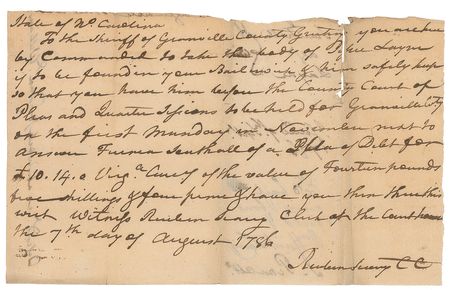 State of No. Carolina
To the Sheriff of Granville County Greeting you are here
by Commanded to take the body of Layne
if to be found in your Bailiwick & him safely keep
so that you have him before the County Court of
Pleas and Quarter Sessions to be held for Granville Cty
on the first Munday in November next to
answer Southall of a Plea of Debt for
£10.14.0 Virga. Curcy of the value of Fourteen pounds
five shillings & four pence & have you then there this
writ Witness Reuben Searcy Clerk of the Court
the 7th day of August 1786
Reuben Searcy CC